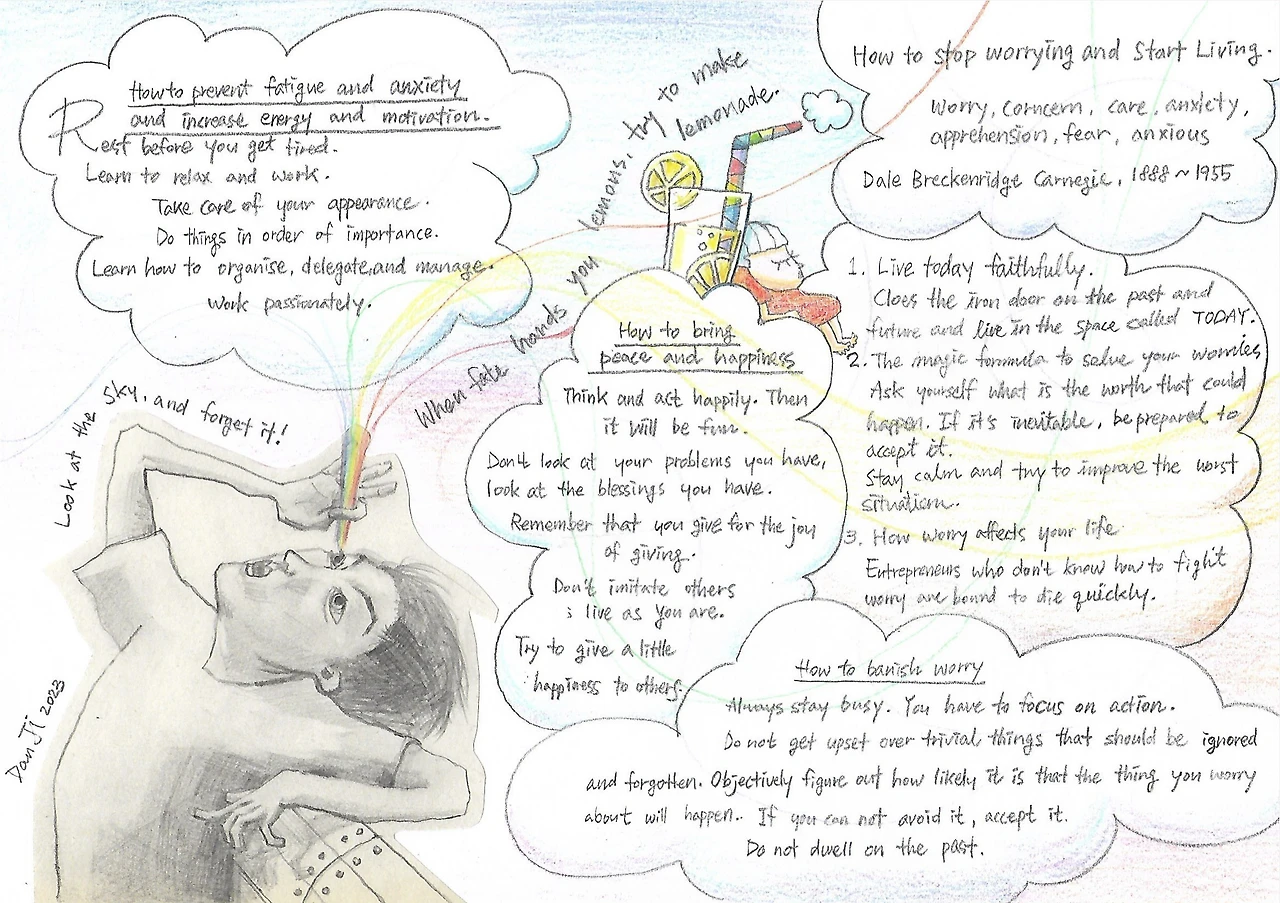 How to prevent fatigue and anxiety
and increase energy and motivation.
Rest before you get tired.
Learn to relax and work.
Take care of your appearance.
Do things in order of importance.
Learn how to organise, delegate, and manage.
Work passionately.
When fate hands you lemons, try to make
lemonade.
How to stop worrying and Start Living.
Worry, corncern, care, anxiety,
apprehension, fear, anxious
Dale Breckenridge Carnegie, 1888 ~ 1955
1. Live today faithfully.
Cloes the iron door on the past and
future and live in the space called TODAY.
2. The magic formula to solve your worries
Ask yourself what is the worth that could
happen. If it's inevitable, be prepared to
accept it.
Stay calm and try to improve the worst
situation.
3. How worry affects your life
Entrepreneurs who don't know how to fight
worry are bound to die quickly.
How to bring
peace and happiness
Think and act happily. Then
it will be fun.
Don't look at your problems you have,
look at the blessings you have.
Remember that you give for the joy
of giving.
Don't imitate others
; live as you are.
Try to give a little
happiness to others.
Look at the sky, and forget it!
Dan Ji 2023
How to banish worry
Always stay busy. You have to focus on action.
Do not get upset over trivial things that should be ignored
and forgotten. Objectively figure out how likely it is that the thing you worry
about will happen. If you can not avoid it, accept it.
Do not dwell on the past.